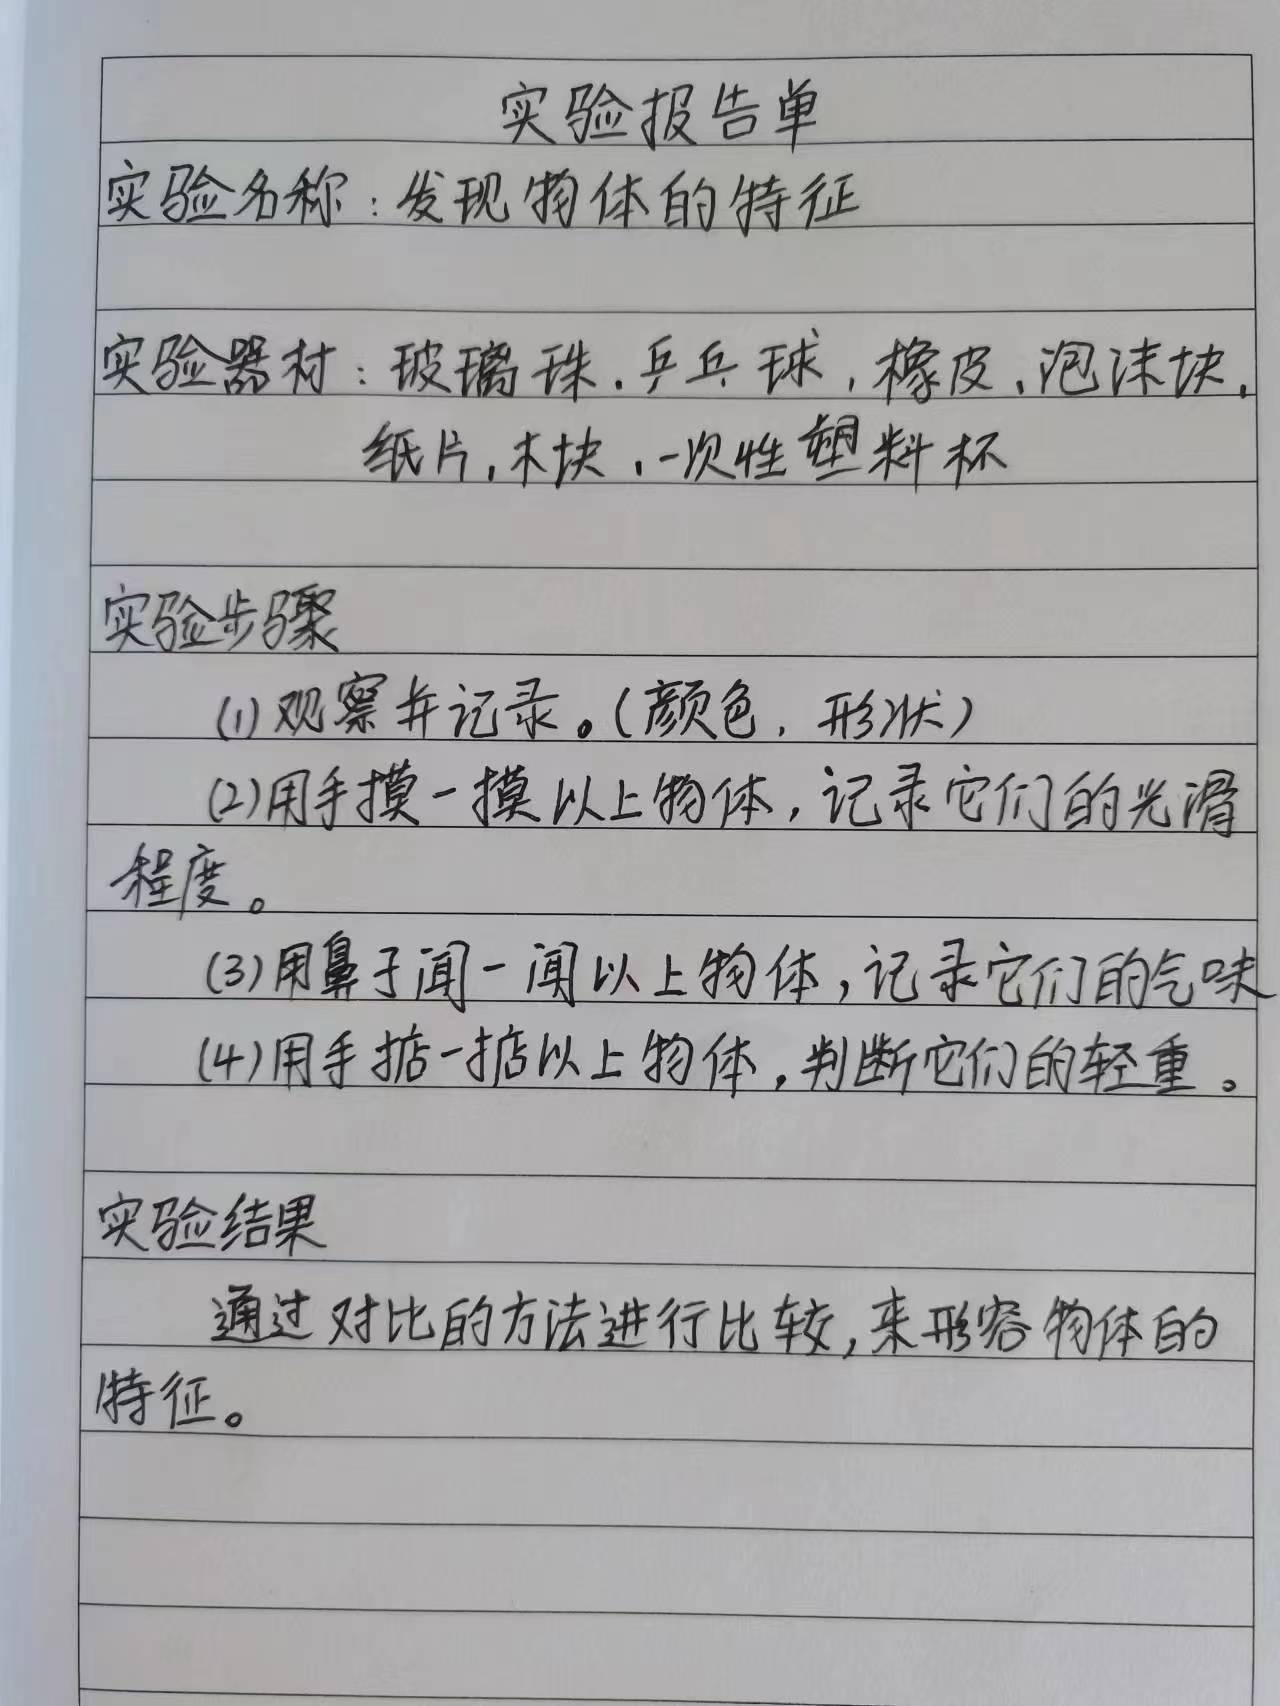 实验报告单
实验名称：发现物体的特征
实验器材：玻璃珠、乒乓球、橡皮、泡沫块、
纸片、木块、一次性塑料杯
实验步骤
(1)观察并记录。(颜色、形状)
(2)用手摸一摸以上物体,记录它们的光滑
程度。
(3)用鼻子闻一闻以上物体,记录它们的气味
(4)用手掂一掂以上物体,判断它们的轻重。
实验结果
通过对比的方法进行比较,来形容物体的
特征。